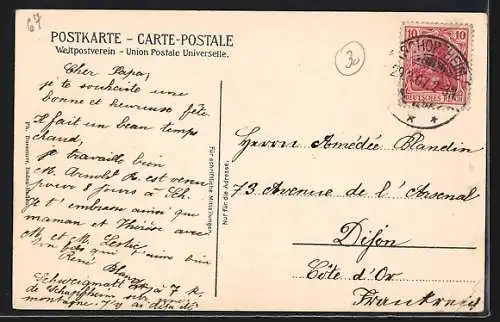 67
POSTKARTE - CARTE-POSTALE
Weltpostverein - Union Postale Universelle.
30
10 10
DEUTSCHES REICH
SCHOPFHEIM
Cher Papa,
je te souhaite une
bonne et heureuse fête.
Il fait un beau temps
chaud,
je travaille bien
M. Arnolet R. est venu
pour 8 jours à Sch.
Je t'embrasse ainsi que
maman et Thérèse avec
M. et M.
ton fils qui t'aime bien
René
Schweigmatt à 7 k.
de Schopfheim
montagne. J'y ai
Für schriftliche Mitteilungen.
Nur für die Adresse.
Herrn Amédée Blandin
73 Avenue de l'Arsenal
Dijon
Côte d'Or
Frankreich